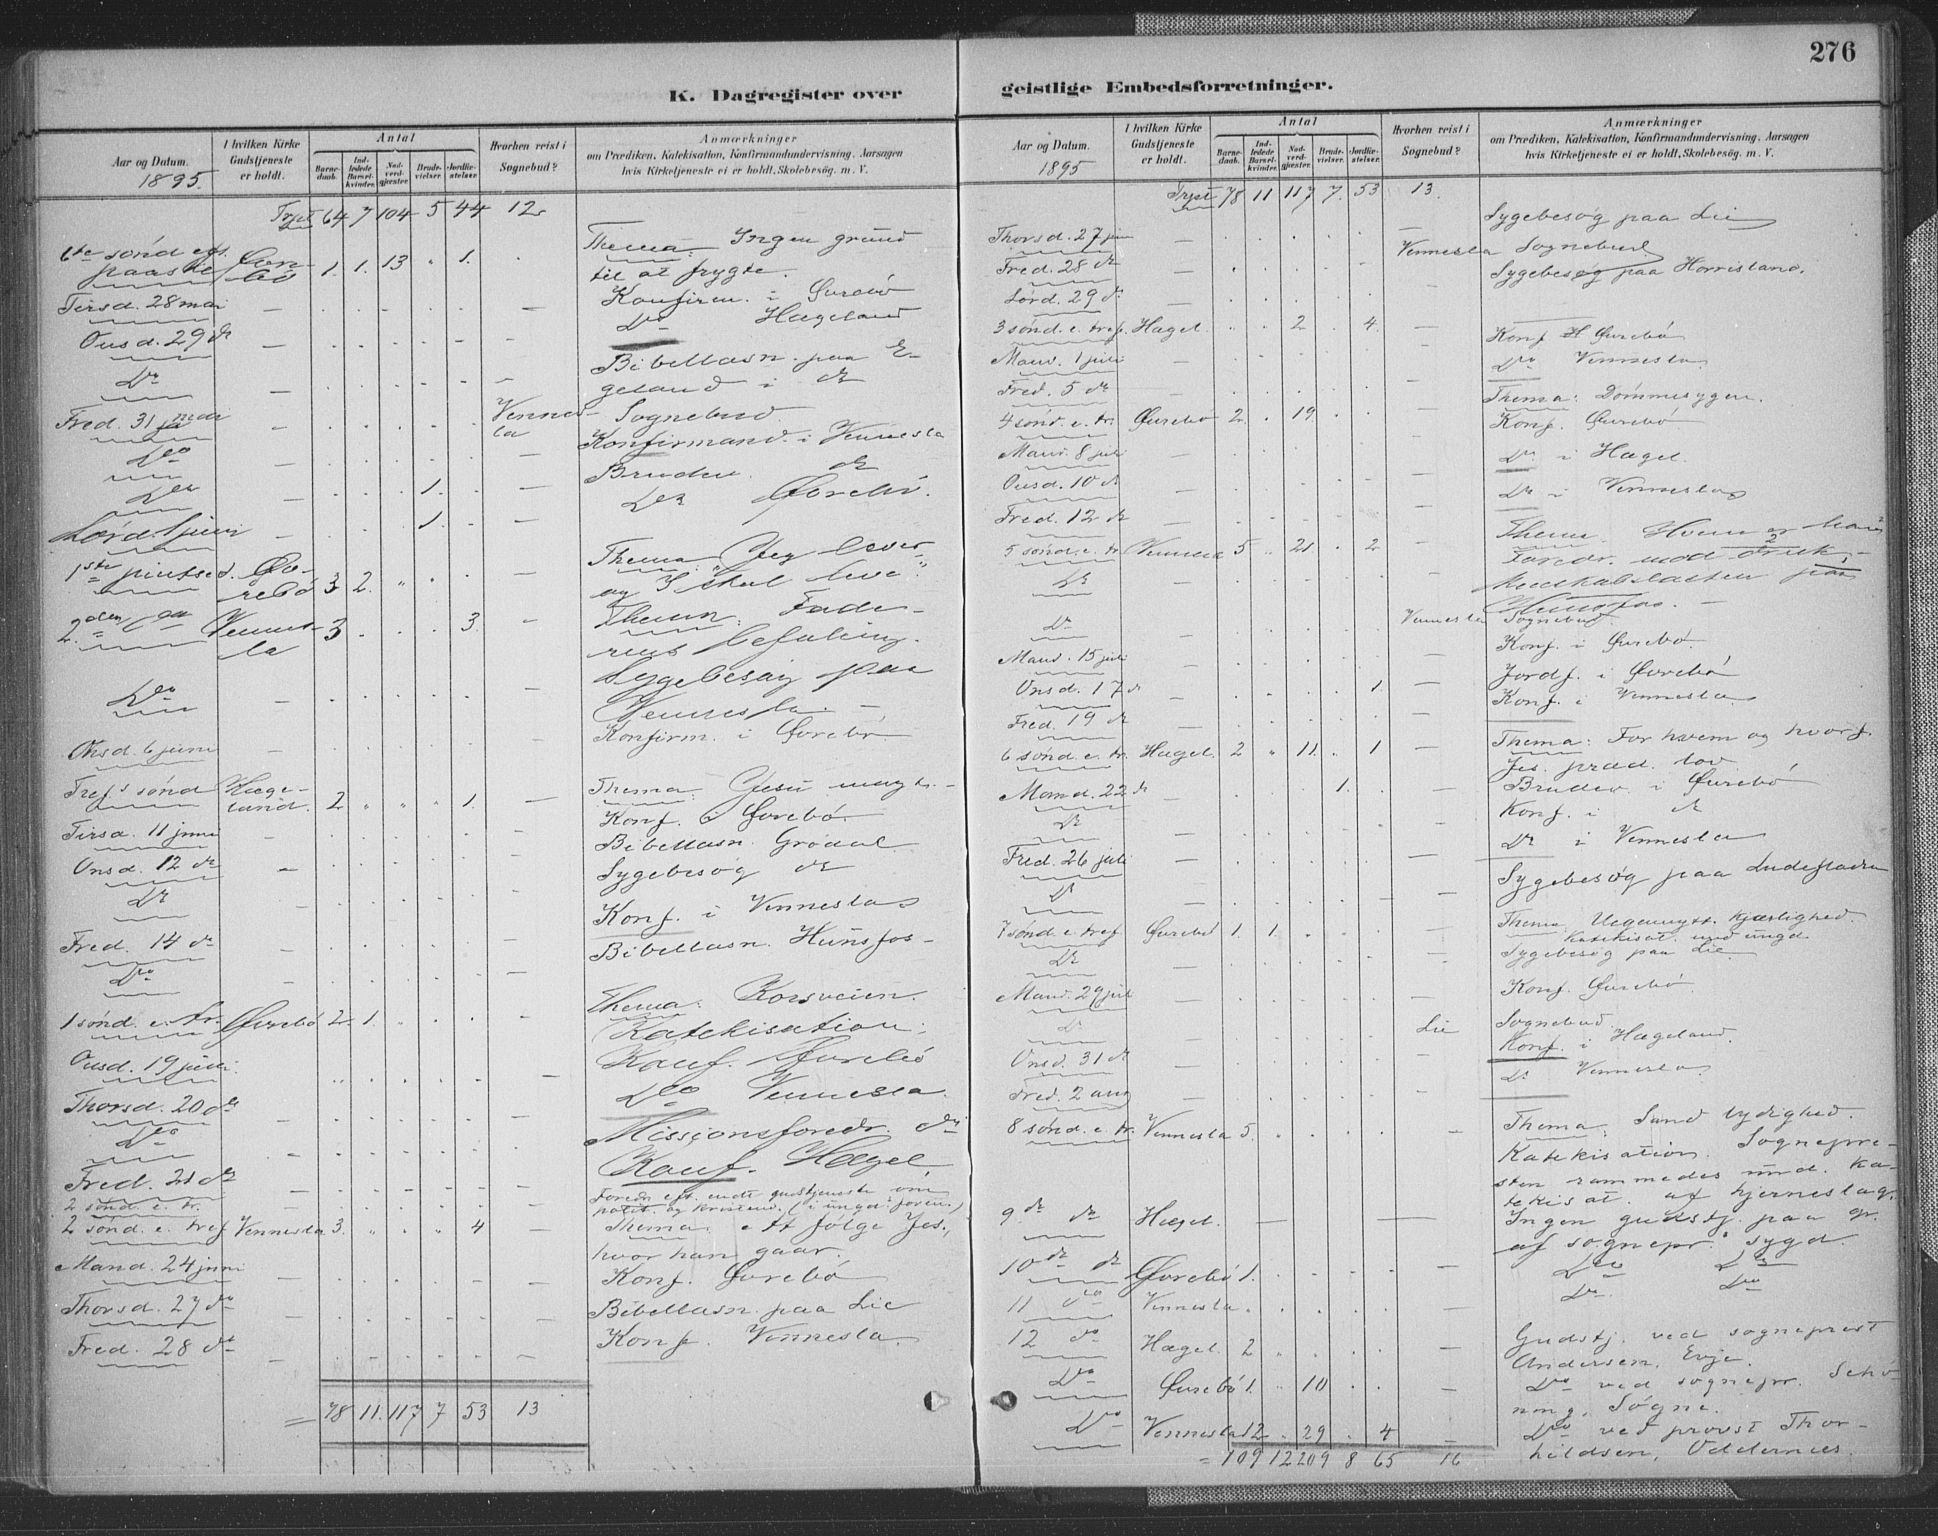 276
K. Dagregister over
geistlige Embedsforretninger.
Aar og Datum.
1895.
I hvilken Kirke Gudstjeneste er holdt.
Antal
Barne-daab.
Ind-ledede Barsel-kvinder.
Nad-verd-gjester.
Brude-vielser.
Jordfæ-stelser.
Hvorhen reist i Sognebud?
Anmærkninger
om Prædiken, Katekisation, Konfirmandundervisning, Aarsagen
hvis Kirketjeneste ei er holdt, Skolebesøg, m. V.
Trspt 64 7 104 5 44 12
6te sønd eft. Thema: Ingen grund
paaske Øvrebø 1. 1. 13 " 1. til at frygte.
Tirsd. 28 mai Konfirm. i Øvrebø
Onsd. 29 do Do Hægeland
Do Bibellæsn. paa E-
geland i do
Fred. 31 mai Vennesla Sognebud
Do Konfirmand. i Vennesla
Do 1. Bruden do
Lørd. 1 juni 1. Do Øvrebø.
1ste pintsed. Øvrebø 3 2. " Thema: "Jeg lever
og I skal leve".
2den do Vennesla 3 3. Thema: Fade-
rens befaling.
Do Sygebesøg paa
Vennesla.
Onsd. 6 juni Konfirm. i Øvrebø
Tref. sønd Hægeland. 2 " " " 1. Thema: Jesu magt.
Tirsd. 11 juni Konf. i Øvrebø.
Onsd. 12 do Bibellæsn. Grødal
Do Sygebesøg do
Fred. 14 do Konf. i Vennesla
Do Bibellæsn. Hunsfos
1 sønd. e. tr. Øvrebø 2 1. Thema: Korsveien.
Katekisation.
Onsd. 19 juni. Konf. Øvrebø
Thorsd. 20 do Do Vennesla.
Do Missionsforedr. do
Fred. 21 do Konf. Hægel.
2 sønd. e. tr. Foredr. eft. endt gudstjeneste om
polit. og kristend. (i ungd.foren.)
2 sønd. e. tref Vennesla 3. " " " 4 Thema: At følge Jes.,
hvor han gaar.
Mand. 24 juni Konf. Øvrebø
Thorsd. 27 do Bibellæsn. paa Lie
Fred. 28 do Konf. Vennesla
= 78 11. 117 7 53 13
Aar og Datum.
1895
I hvilken Kirke Gudstjeneste er holdt.
Antal
Barne-daab.
Ind-ledede Barsel-kvinder.
Nad-verd-gjester.
Brude-vielser.
Jordfæ-stelser.
Hvorhen reist i Sognebud?
Anmærkninger
om Prædiken, Katekisation, Konfirmandundervisning, Aarsagen
hvis Kirketjeneste ei er holdt, Skolebesøg, m. V.
Trspt 78 11 117 7. 53 13.
Thorsd. 27 juni Sygebesøg paa Lie
Fred. 28 do Vennesla Sognebud
Lørd. 29 do Sygebesøg paa Horrisland.
3 sønd. e. tref. Hægel. 2 4.
Mand. 1 juli Konf Øvrebø
Fred. 5 do Do Vennesla
4 sønd. e. tr. Øvrebø 2. 19. Thema: Dømmesygen.
Mand. 8 juli Konf. Øvrebø
Onsd. 10 do Do i Hægel.
Fred. 12 do Do i Vennesla
5 sønd. e. tr. Vennesla 5 " 21 2 Thema: Hvem er
Do Foredr. mod drik,
paa
Hunsfos.
Do Vennesla Sognebud.
Mand. 15 juli Konf. i Øvrebø.
Onsd. 17 do 1. Jordf. i Øvrebø
Fred. 19 do Konf. i Vennesla
6 sønd. e. tr. Hægel. 2 " 11. 1 Thema: For hvem og hvorf.
Jes. præd. lov
Mand. 22 do 1. Bruden i Øvrebø
Do Konf. i do
Fred. 26 juli Do i Vennesla
Do Sygebesøg paa
7 sønd e. tref. Øvrebø 1. 1. Thema: Uegennytt. kjærlighed.
Katekisat. med ungd.
Do Sygebesøg paa Lie
Mand. 29 juli Konf. Øvrebø.
Do Lie Sognebud
Onsd. 31 do Konf. i Hægeland.
Fred. 2 aug Do Vennesla
8 sønd. e. tr. Vennesla 5. Thema: Sand lydighed.
Katekisation. Sognepre-
sten rammedes und. ka-
tekisat. af hjerneslag.
9 do do Hægel. Ingen gudstj. paa gr.
af sognepr. sygd.
10de do Øvrebø 1. Do Do
11 do Vennesla Do. Do
12 do Hægel. 2 Gudstj. ved sogneprest
Andersen, Evje.
Do Øvrebø 1. 10 Do ved sognepr. Schø-
ning, Søgne.
Do Vennesla 12 29 4 Do ved provst Thor-
kildsen, Oddernes.
= 109 12 209 8 65 16